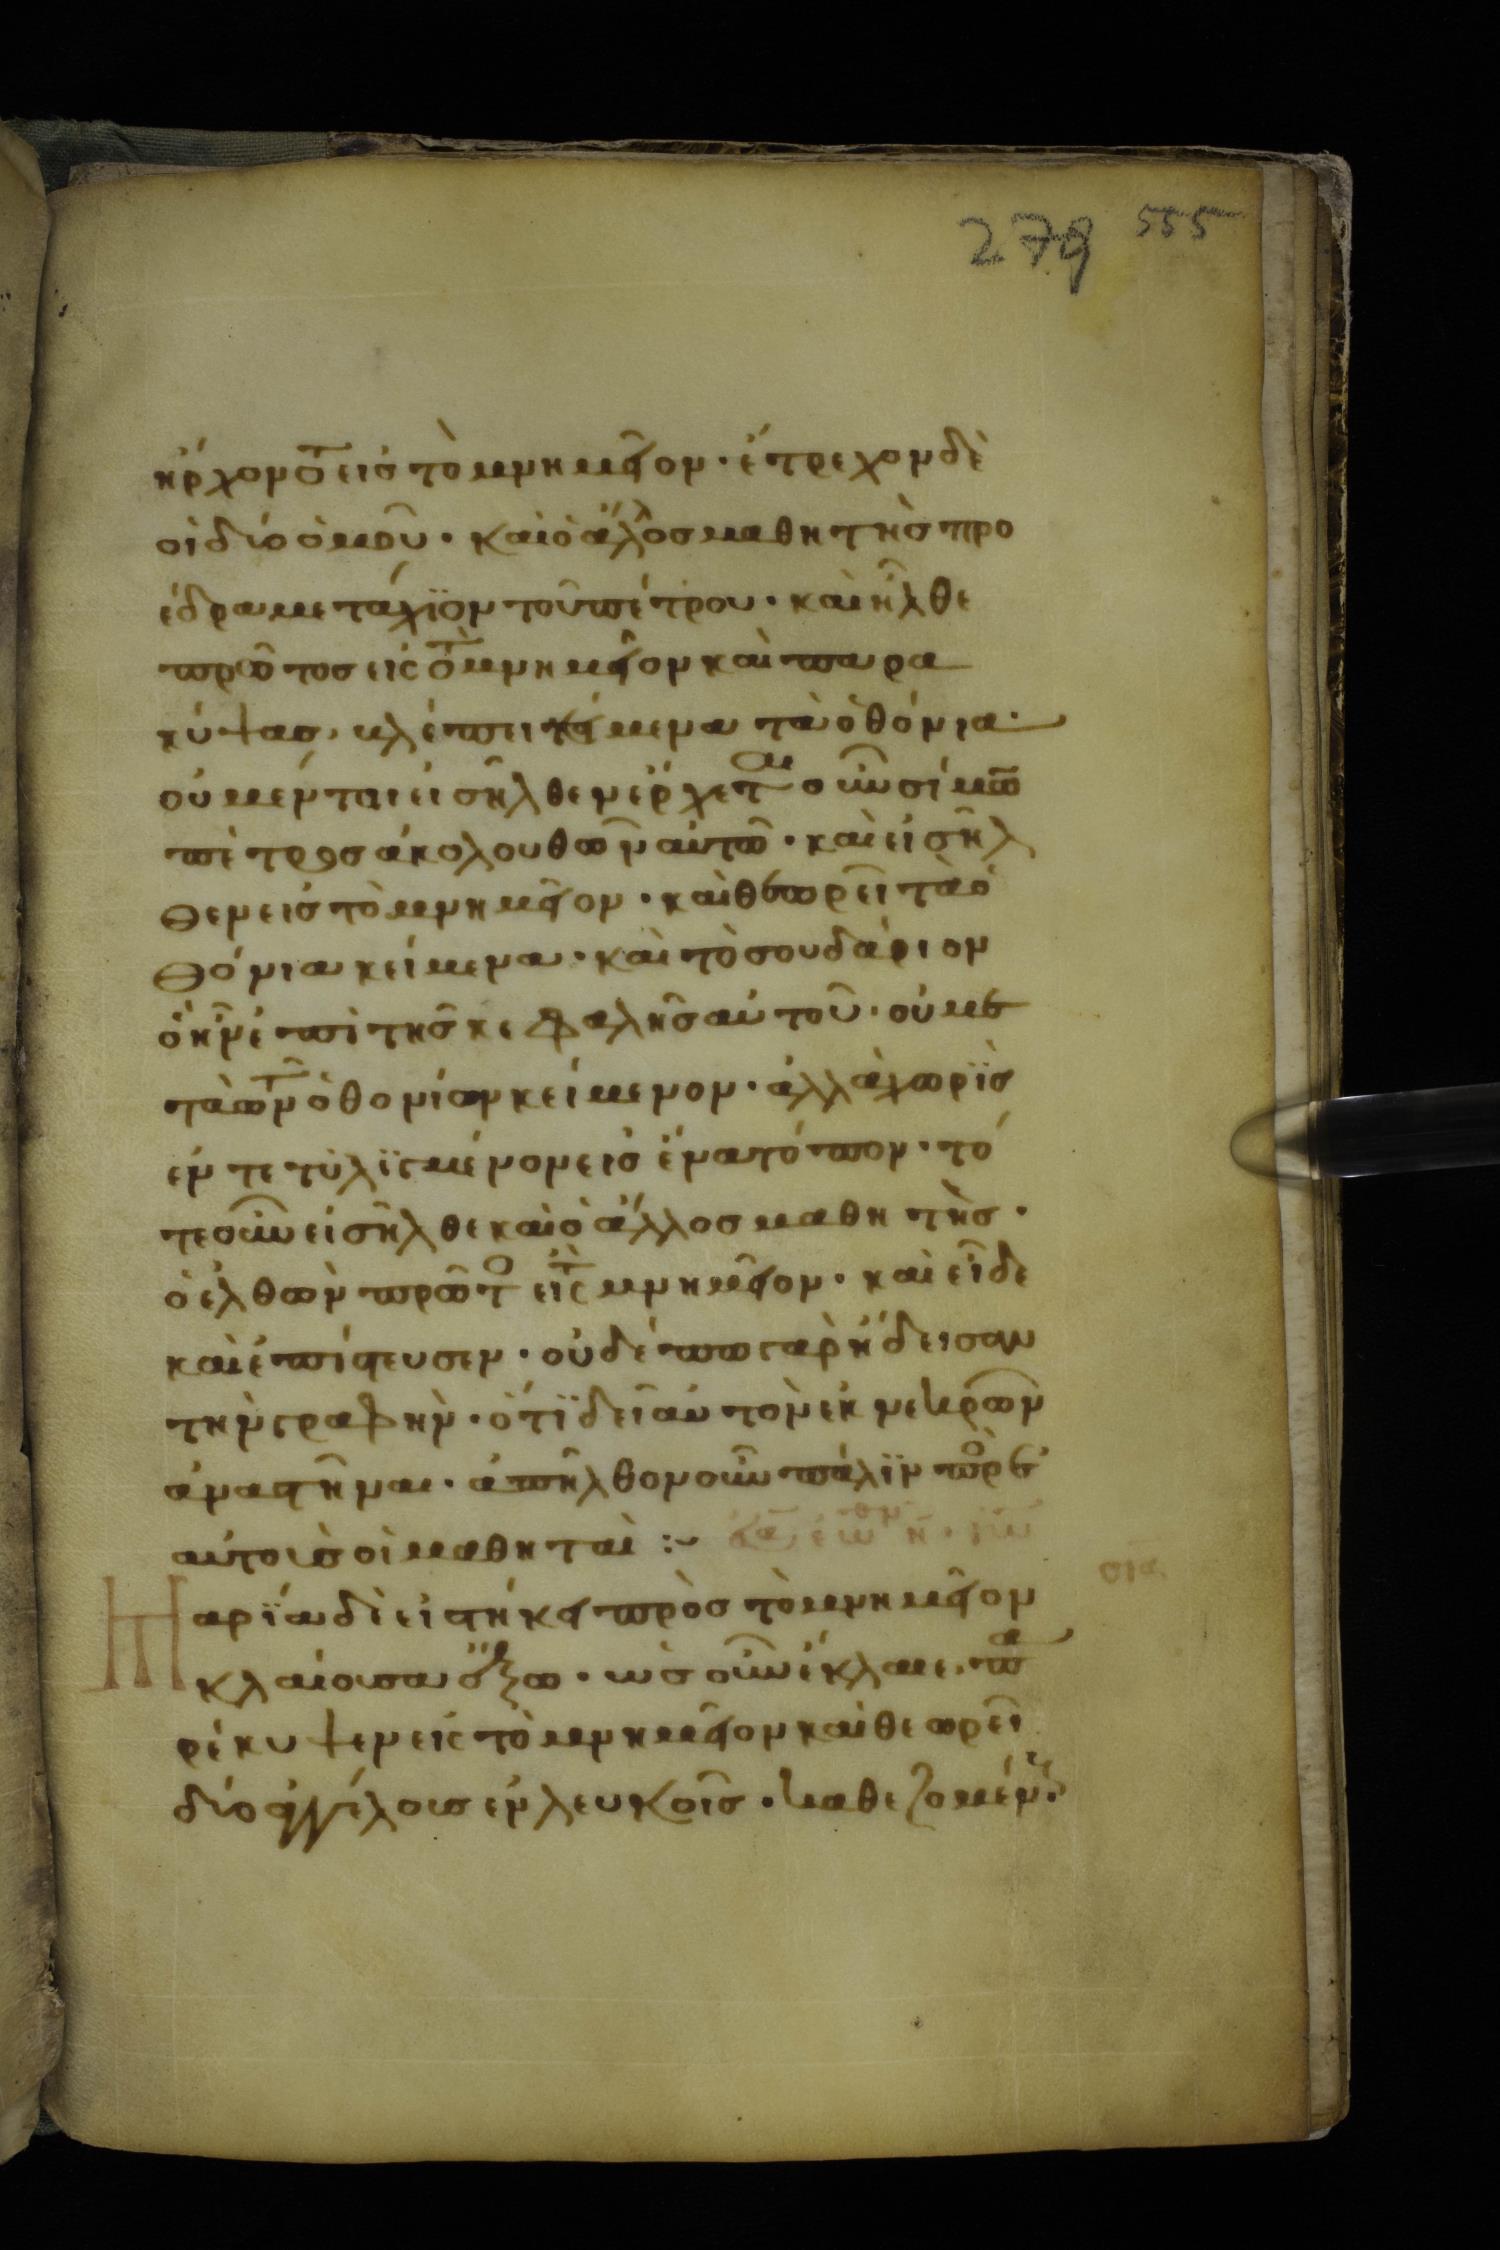 279 555
ἤρχοντο εἰς τὸ μνημεῖον · ἔτρεχον δὲ
οἱ δύο ὁμοῦ · καὶ ὁ ἄλλος μαθητὴς προ
έδραμε τάχϊον τοῦ πέτρου · καὶ ἦλθε
πρῶτος εἰς τὸ μνημεῖον καὶ παρα
κύψας βλέπει κείμενα τὰ ὀθόνια ·
οὐ μέν τοι εἰσῆλθεν ἔρχεται οὖν σίμων
πέτρος ἀκολουθῶν αὐτῶ · καὶ εἰσῆλ
θεν εἰς τὸ μνημεῖον · καὶ θεωρεῖ τὰ ὀ
θόνια κείμενα · καὶ τὸ σουδάριον
ὃ ἦν ἐπὶ τῆς κεφαλῆς αὐτοῦ · οὐ με
τὰ τῶν ὀθονίων κείμενον · ἀλλὰ χωρϊς
ἐντετυλϊσμένον εἰς ἕνα τόπον · τό
τε οὖν εἰσῆλθε καὶ ὁ ἄλλος μαθητὴς ·
ὁ ἐλθὼν πρῶτος εἰς τὸ μνημεῖον · καὶ εἶδε
καὶ ἐπίστευσεν · οὐδέπω γὰρ ἤδεισαν
τὴν γραφὴν · ὅτϊ δεῖ αὐτὸν ἐκ νεκρῶν
ἀναστῆναι · ἀπῆλθον οὖν πάλϊν πρὸς ἑ
αυτοὺς οἱ μαθηταὶ :~
Μαρϊα δὲ εἱστήκει πρὸς τὸ μνημεῖον
κλαίουσα ἔξω · ὡς οὖν ἔκλαιε, πα
ρέκυψεν εἰς τὸ μνημεῖον καὶ θεωρεῖ
δύο ἀγγέλους ἐν λευκοῖς · καθεζομένους